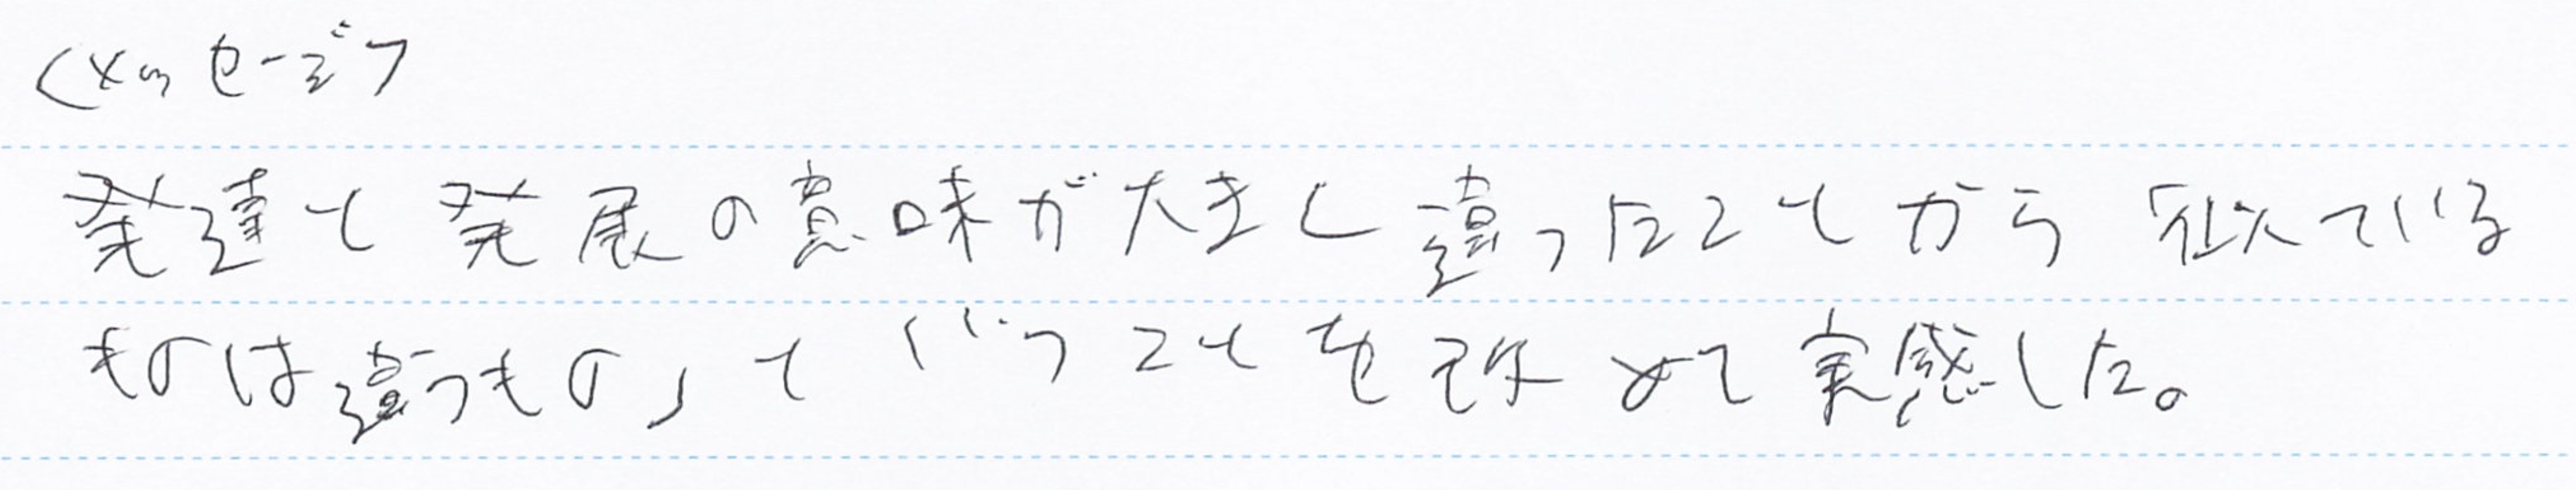 <メッセージ>
発達と発展の意味が大きく違ったことから「似ている
ものは違うもの」ということを改めて実感した。